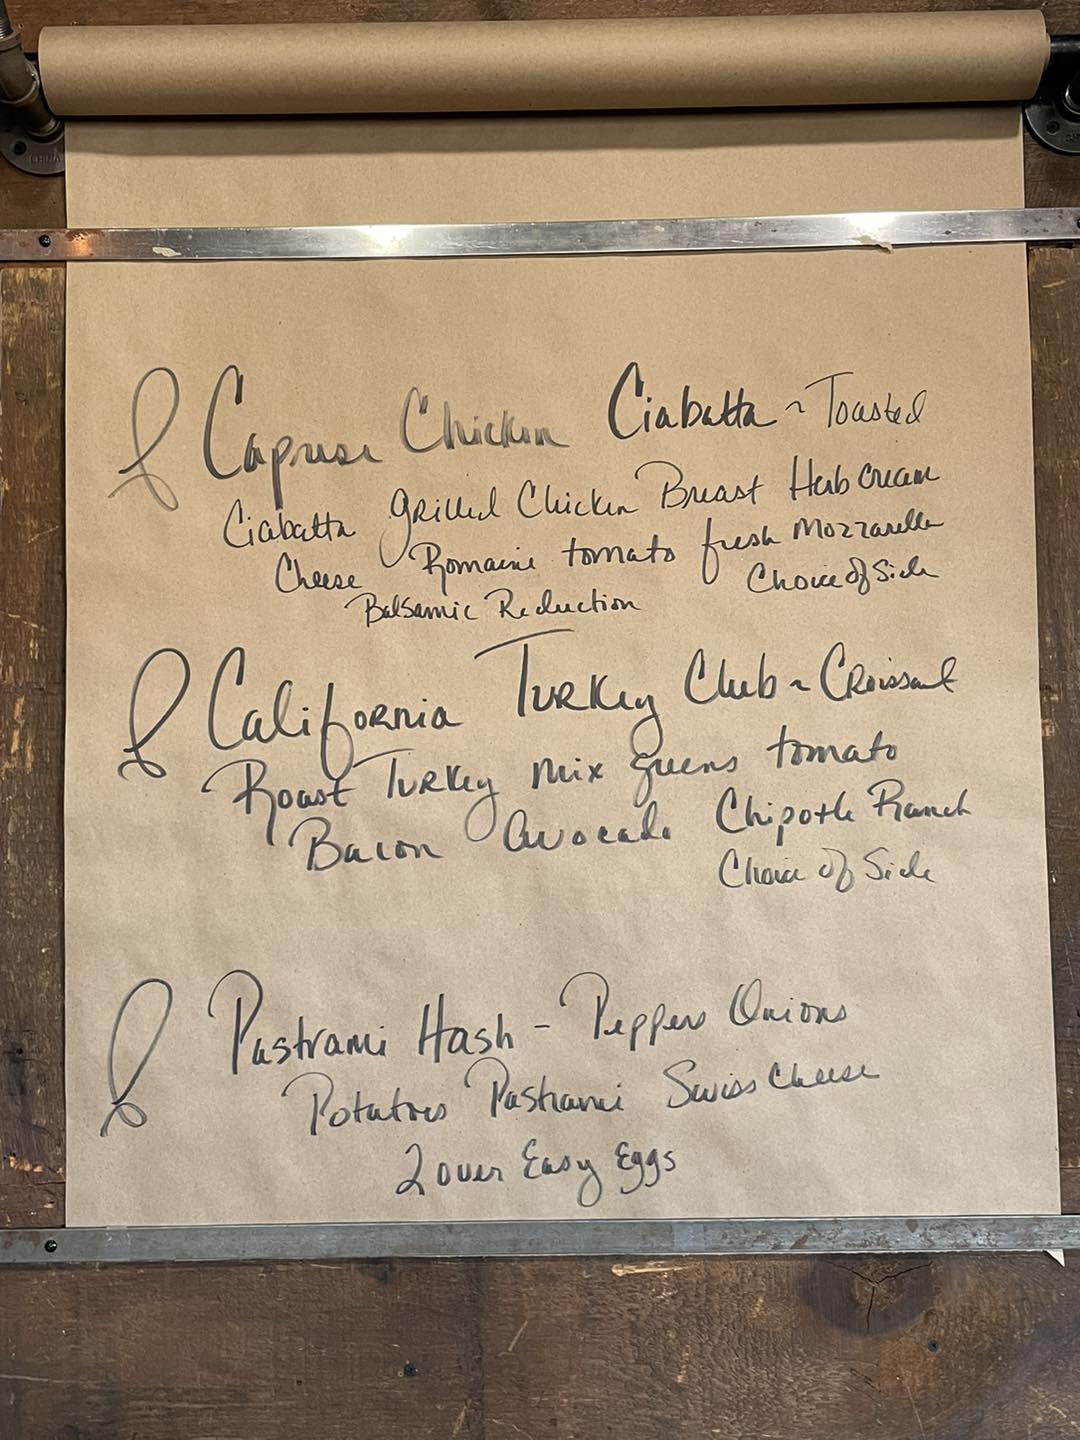 Caprese Chicken Ciabatta ~ Toasted
Ciabatta grilled Chicken Breast Herb Cream
Cheese Romaine tomato fresh Mozzarella
Balsamic Reduction Choice of Side
California Turkey Club ~ Croissant
Roast Turkey mix greens tomato
Bacon avocado Chipotle Ranch
Choice of Side
Pastrami Hash - Peppers Onions
Potatoes Pastrami Swiss Cheese
2 over Easy Eggs